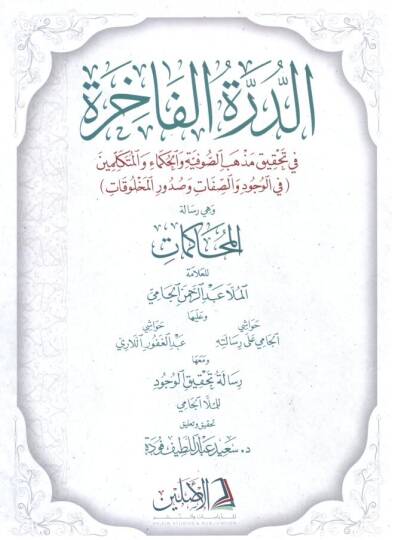 الدُّرَّةُ الفَاخِرَة
في تَحْقِيقِ مَذْهَبِ الصُّوفِيَةِ وَالحُكَمَاءِ وَالمُتَكَلِّمِينَ
(في الوُجُودِ وَالصِّفَاتِ وَصُدُورِ المَخْلُوقَاتِ)
وهي رسالة
المُحَاكَمَاتِ
للعلامة
المُلَّا عَبْدِ الرَّحْمنِ الجَامِيِّ
وعليها
حواشي حواشي
الجامي على رسالته عبد الغفور اللاري
ومعها
رِسَالَةُ تَحْقِيقِ الوُجُودِ
للملا الجامي
تحقيق وتعليق
د. سَعِيد عَبْد اللَّطِيف فُودَة
الأصلين
للدراسات والنشر
ASLEIN STUDIES & PUBLICATION